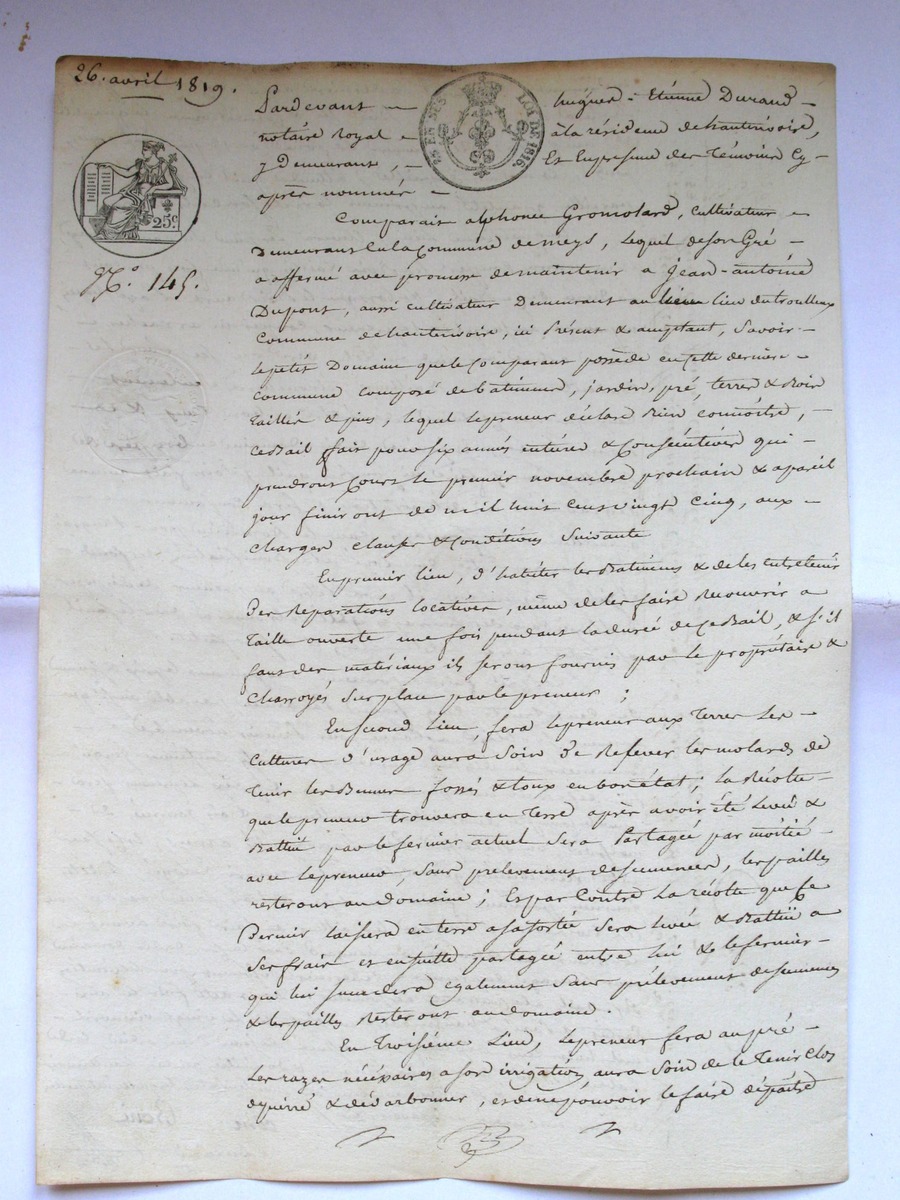 26. avril 1819.
Pardevant - hugues - Etiénne Durand -
notaire royal - à la résidence de hauterivoire,
y Demeurant, - Et En presence des Témoins Cy -
après nommés -
LOI DE 1816.
25 EN SUS
25 c.
N.º 145.
Comparait alphonce Gromolard, Cultivateur -
Demeurant En la Commune de meys, lequel de son Gré -
a affermé avec promesse de maintenir a Jean-antoine
Dupont, aussi cultivateur Demeurant au lieu du trouilleux
Commune de hauterivoire, ici Présent & acceptant, Savoir -
le petit Domaine que le Comparant possède en cette derniere -
Commune Composé de bâtimens, jardin, pré, terres & Bois
taillis & pins, lequel le preneur déclare Bien connoître, -
Ce Bail fait pour six années entiéres & Consécutives qui -
prendront Cours le premier novembre prochain & a pareil
jour finiront de mil huit cent vingt cinq, aux -
Charges clauses & Conditions Suivantes
En premier lieu, d'habiter les Batimens & de les Entretenir
De Reparations locatives, même de les faire Recouvrir a
Taille ouverte une fois pendant la durée de Ce Bail, & s'il
faut des matériaux ils seront fournis par le propriétaire &
Charroyés Sur place par le preneur ;
En second Lieu, fera le preneur aux Terres Les -
Cultures d'usage aura Soin De Relever les molards de
Tenir les Bennes fossés & Toux en bon état ; la Récolte -
que le preneur trouvera en Terre après avoir été Levée &
Battüe par le fermier actuel Sera Partagée par moitié -
avec le preneur, Sans prélevement de semences, les pailles
resteront au domaine ; Et par Contre La récolte que Ce
Dernier laissera en terre a sa sortie Sera levée & Battüe a
Ses frais et ensuite partagée entre lui & le fermier -
qui lui succédera également Sans prélevement de semences
& les pailles Resteront au domaine.
En Troisiéme Lieu, le preneur fera au pré -
Les razes nécéssaires a son irrigation, aura Soin de le Tenir Clos
épierré & dédarbonner, et de ne pouvoir le faire dépaitre